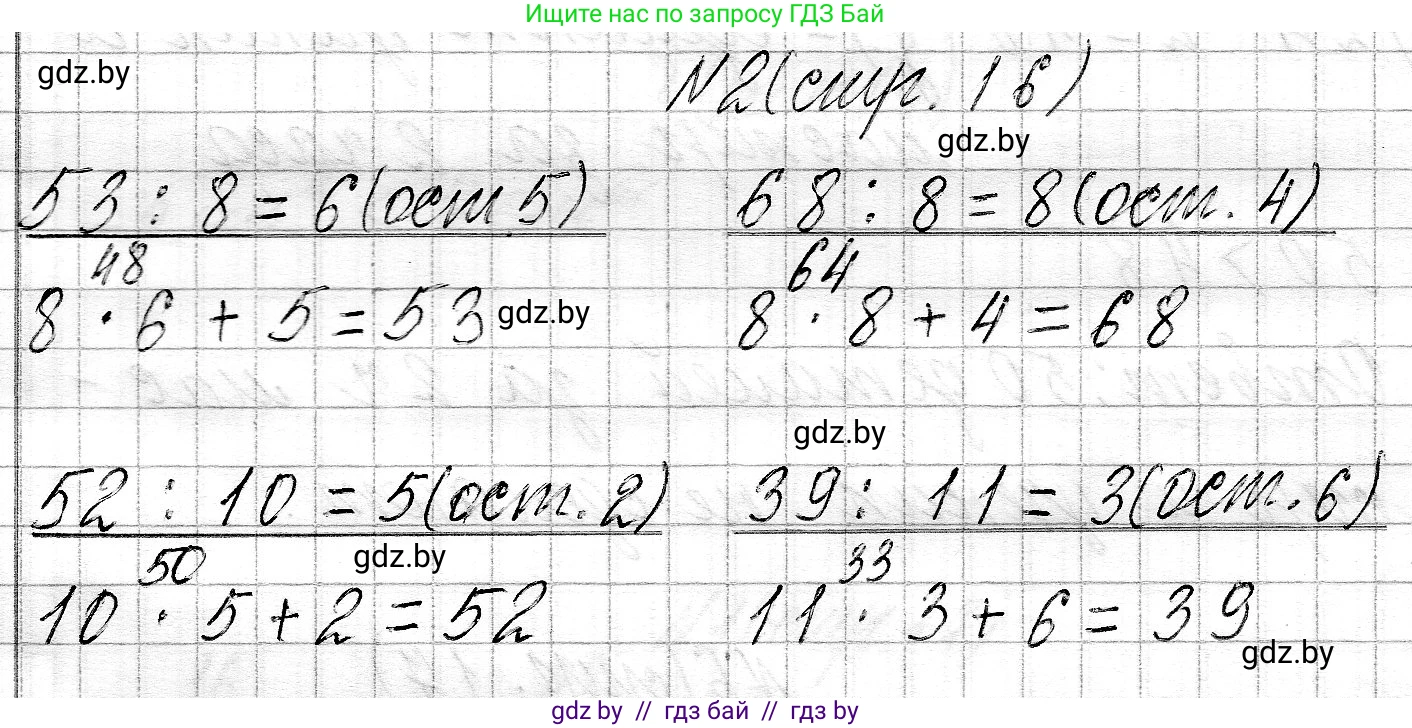 Ищите нас по запросу ГДЗ Бай
gdz.by
№2(стр. 16)
gdz.by
53 : 8 = 6(ост 5)
68 : 8 = 8(ост. 4)
48
64
8 · 6 + 5 = 53
gdz.by
8 · 8 + 4 = 68
gdz.by
52 : 10 = 5(ост. 2)
39 : 11 = 3(ост. 6)
50
gdz.by
33
10 · 5 + 2 = 52
11 · 3 + 6 = 39
gdz.by
gdz.by // гдз бай // гдз by